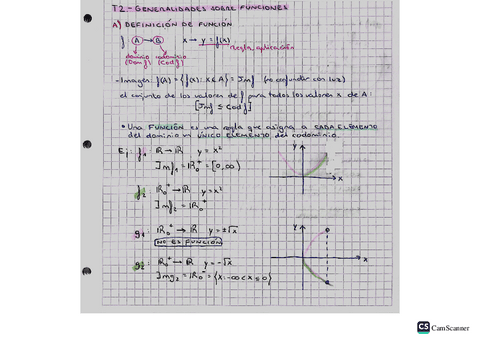 T2.- GENERALIDADES SOBRE FUNCIONES
A) DEFINICIÓN DE FUNCIÓN
f A → B x → y = f(x)
regla aplicación
dominio codominio
(Dom f) (Cod f)
- Imagen: f(A) = {f(x): x ∈ A} = Im f (no confundir con luz)
el conjunto de los valores de f para todos los valores x de A:
[Im f ⊆ Cod f]
• Una FUNCIÓN es una regla que asigna a CADA ELEMENTO
del dominio un ÚNICO ELEMENTO del codominio.
Ej: f₁: ℝ → ℝ y = x²
Im f₁ = ℝ₀⁺ = [0,∞)
y
x
f₂: ℝ₀⁺ → ℝ y = x²
Im f₂ = ℝ₀⁺
g₁: ℝ₀⁺ → ℝ y = ±√x
NO ES FUNCIÓN
y
x
g₂: ℝ₀⁺ → ℝ y = -√x
Im g₂ = ℝ₀⁻ = {x: -∞ < x ≤ 0}
CS CamScanner